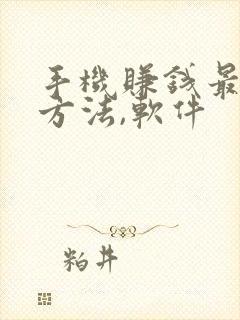 手機賺錢最
方法,軟件
粕井